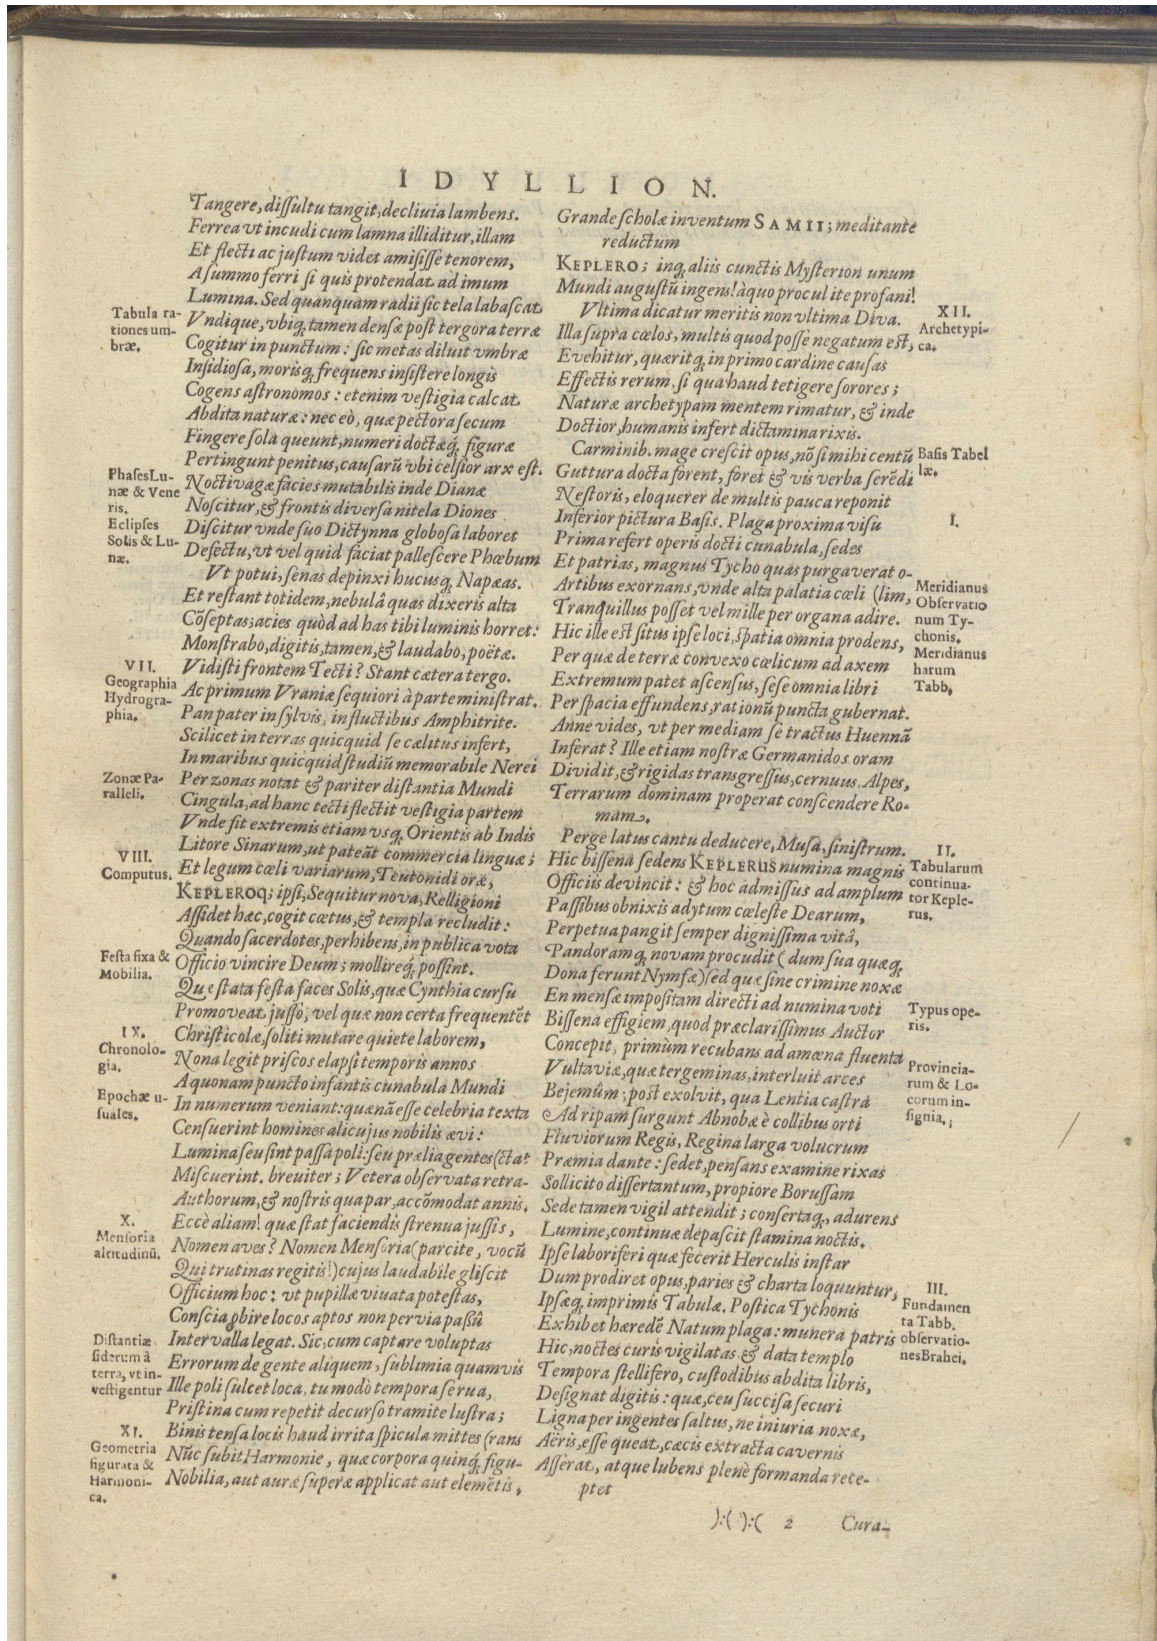 IDYLLION.
Tangere, diſſultu tangit, decliuia lambens.
Ferrea vt incudi cum lamna illiditur, illam
Et flecti ac juſtum videt amiſiſſe tenorem,
A ſummo ferri ſi quis protendat ad imum
Lumina. Sed quanquam radii ſic tela labaſcat
Tabula ra-
tiones um-
bræ.
Vndique, vbiq; tamen denſæ poſt tergora terræ
Cogitur in punctum: ſic metas diluit vmbræ
Inſidioſa, morisq; frequens inſiſtere longis
Cogens aſtronomos: etenim veſtigia calcat
Abdita naturæ: nec eò, quæ pectora ſecum
Fingere ſola queunt, numeri doctæq; figuræ
Pertingunt penitus, cauſarũ vbi celſior arx eſt.
Phaſes Lu-
næ & Vene
ris.
Eclipſes
Solis & Lu-
næ.
Noctivagæ facies mutabilis inde Dianæ
Noſcitur, & frontis diverſa nitela Diones
Diſcitur vnde ſuo Dictynna globoſa laboret
Defectu, vt vel quid faciat palleſcere Phœbum
Vt potui, ſenas depinxi hucusq; Napæas.
Et reſtant totidem, nebulâ quas dixeris alta
Cõſeptas; acies quòd ad has tibi luminis horret:
Monſtrabo, digitis, tamen, & laudabo, poëtæ.
VII.
Geographia
Hydrogra-
phia.
Vidiſti frontem Tecti? Stant cætera tergo.
Ac primum Vraniæ ſequiori à parte miniſtrat.
Pan pater in ſylvis, in fluctibus Amphitrite.
Scilicet in terras quicquid ſe cælitus infert,
In maribus quicquid ſtudiũ memorabile Nerei
Zonæ Pa-
ralleli.
Per zonas notat & pariter diſtantia Mundi
Cingula, ad hanc tecti flectit veſtigia partem
Vnde ſit extremis etiam vsq; Orientis ab Indis
Litore Sinarum, ut pateãt commercia linguæ;
VIII.
Computus.
Et legum cæli variarum, Teutonidi oræ,
KEPLEROq; ipſi, Sequitur nova, Relligioni
Aſſidet hæc, cogit cœtus, & templa recludit:
Quando ſacerdotes, perhibens, in publica vota
Feſta fixa &
Mobilia.
Officio vincire Deum; mollireq; poſſint.
Quæ ſtata feſta faces Solis, quæ Cynthia curſu
Promoveat juſſo; vel quæ non certa frequentẽt
IX.
Chronolo-
gia.
Chriſticolæ, ſoliti mutare quiete laborem,
Nona legit priſcos elapſi temporis annos
A quonam puncto infantis cunabula Mundi
Epochæ u-
ſuales.
In numerum veniant: quænã eſſe celebria texta
Cenſuerint homines alicujus nobilis ævi:
Lumina ſeu ſint paſſa poli: ſeu prælia gentes (ctat
Miſcuerint. breviter; Vetera obſervata retra-
Authorum, & noſtris qua par, accõmodat annis.
X.
Menſoria
altitudinũ.
Eccè aliam! quæ ſtat faciendis ſtrenua juſſis,
Nomen aves? Nomen Menſoria (parcite, vocũ
Qui trutinas regitis!) cujus laudabile gliſcit
Officium hoc: vt pupillæ viuata poteſtas,
Conſcia obire locos aptos non pervia paßũ
Diſtantiæ
ſiderum à
terra, vt in-
veſtigentur
Intervalla legat. Sic, cum captare voluptas
Errorum de gente aliquem, ſublimia quamvis
Ille poli ſulcet loca, tu modò tempora ſerua,
Priſtina cum repetit decurſo tramite luſtra;
XI.
Geometria
figurata &
Harmoni-
ca.
Binis tenſa locis haud irrita ſpicula mittes (rans
Nũc ſubit Harmonie, quæ corpora quinq; figu-
Nobilia, aut auræ ſuperæ applicat aut elemẽtis,
Grande ſcholæ inventum SAMII; meditante
reductum
KEPLERO; inq; aliis cunctis Myſterion unum
Mundi auguſtũ ingens! à quo procul ite profani!
XII.
Archetypi-
ca.
Vltima dicatur meritis non vltima Diva.
Illa ſupra cœlos, multis quod poſſe negatum eſt,
Evehitur, quæritq; in primo cardine cauſas
Effectis rerum, ſi qua haud tetigere ſorores;
Naturæ archetypam mentem rimatur, & inde
Doctior, humanis infert dictamina rixis.
Baſis Tabel
læ.
Carminib. mage creſcit opus, nõ ſi mihi centũ
Guttura docta forent, foret & vis verba ſerẽdi
Neſtoris, eloquerer de multis pauca reponit
I.
Inferior pictura Baſis. Plaga proxima viſu
Prima refert operis docti cunabula, ſedes
Et patrias, magnus Tycho quas purgaverat o-
Meridianus
Obſervatio
num Ty-
chonis.
Meridianus
harum
Tabb.
Artibus exornans, vnde alta palatia cœli (lim,
Tranquillus poſſet vel mille per organa adire.
Hic ille eſt ſitus ipſe loci, ſpatia omnia prodens,
Per quæ de terræ convexo cœlicum ad axem
Extremum patet aſcenſus, ſeſe omnia libri
Per ſpacia effundens, rationũ puncta gubernat.
Anne vides, vt per mediam ſe tractus Huennã
Inferat? Ille etiam noſtræ Germanidos oram
Dividit, & rigidas transgreſſus, cernuus, Alpes,
Terrarum dominam properat conſcendere Ro-
mam.
Perge latus cantu deducere, Muſa, ſiniſtrum.
II.
Tabularum
continua-
tor Keple-
rus.
Hic biſſena ſedens KEPLERUS numina magnis
Officiis devincit: & hoc admiſſus ad amplum
Paſſibus obnixis adytum cœleſte Dearum,
Perpetua pangit ſemper digniſſima vitâ,
Pandoramq; novam procudit (dum ſua quæq;
Dona ferunt Nymfæ) ſed quæ ſine crimine noxæ
En menſæ impoſitam directi ad numina voti
Typus ope-
ris.
Biſſena effigiem, quod præclariſſimus Auctor
Concepit, primùm recubans ad amæna fluenta
Provincia-
rum & Lo-
corum in-
ſignia.
Vultaviæ, quæ tergeminas, interluit arces
Bejemûm; poſt exolvit, qua Lentia caſtra
Ad ripam ſurgunt Abnobæ è collibus orti
Fluviorum Regis, Regina larga volucrum
Præmia dante: ſedet, penſans examine rixas
Sollicito diſſertantum, propiore Boruſſam
Sede tamen vigil attendit; conſertaq; adurens
Lumine, continuæ depaſcit ſtamina noctis.
Ipſe laboriferi quæ fecerit Herculis inſtar
Dum prodiret opus, paries & charta loquuntur,
III.
Fundamen
ta Tabb.
obſervatio-
nes Brahei.
Ipſæq; imprimis Tabulæ. Poſtica Tychonis
Exhibet hæredẽ Natum plaga: munera patris
Hic, noctes curis vigilatas & data templo
Tempora ſtellifero, cuſtodibus abdita libris,
Deſignat digitis: quæ, ceu ſucciſa ſecuri
Ligna per ingentes ſaltus, ne iniuria noxæ,
Aëris, eſſe queat, cæcis extracta cavernis
Aſſerat, atque lubens plenè formanda rete-
ptet
):( ):( 2 Cura-